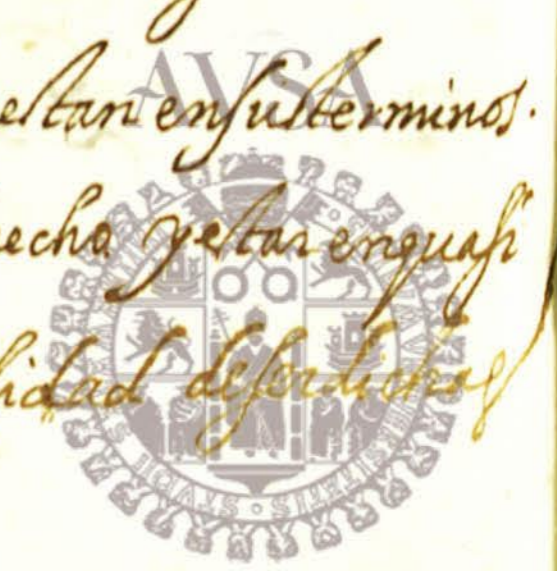 AVSA
estan en sus terminos.
echo y estar en quasi
lidad de ser dichas